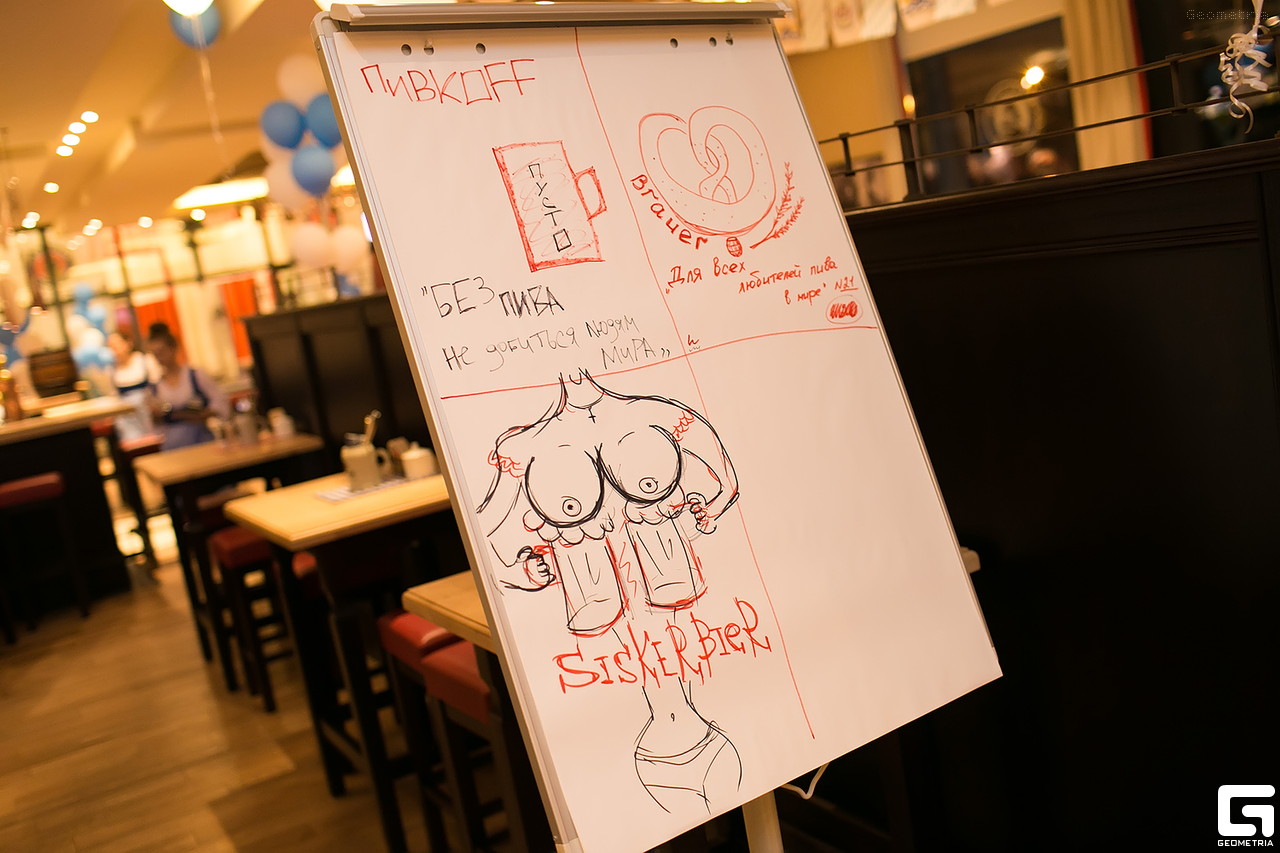 Geometria
ПИВКОFF
ПУСТО
"БЕЗ ПИВА
НЕ ДОБИТЬСЯ ЛЮДЯМ
МИРА"
Brauer
"Для всех
любителей пива
в мире" №21
SISKER BIER
GEOMETRIA